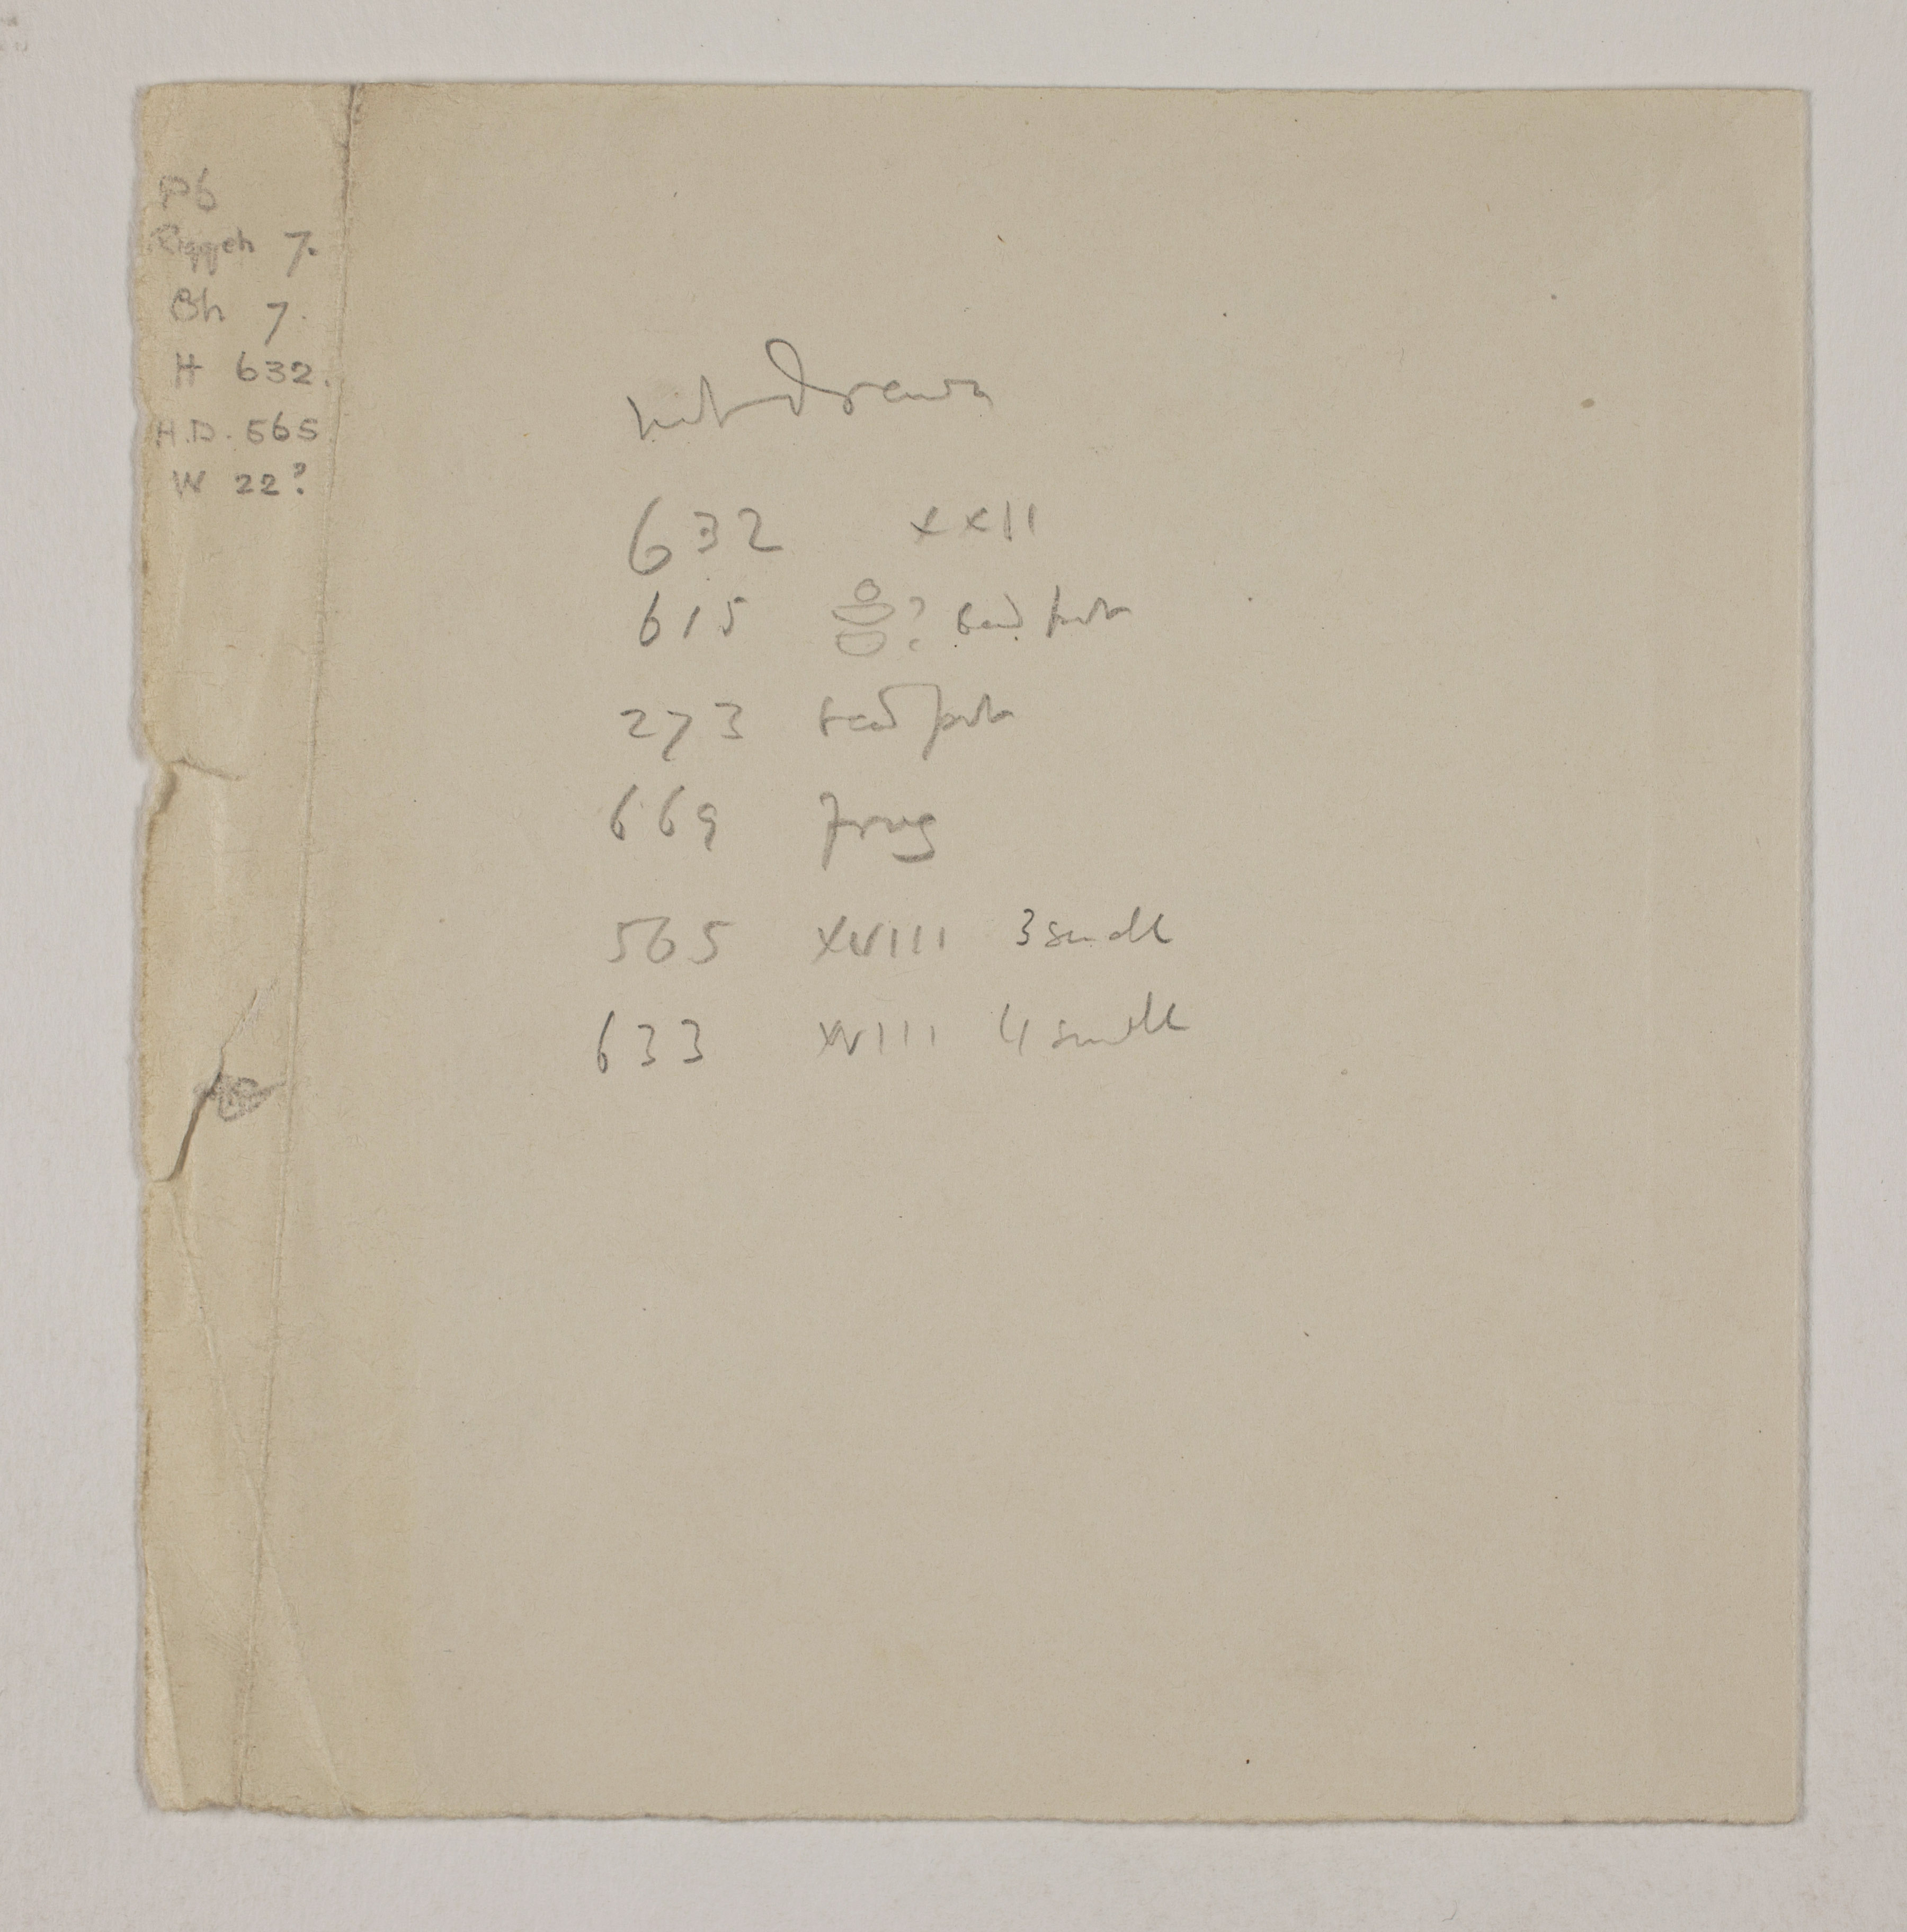 P6
Riqqeh 7.
Bh 7.
H 632.
H.D. 565
W 22?
not drawn
632 XXII
615 ? bad
273 bad
669 frog
565 XVIII 3 small
633 XVIII 4 small